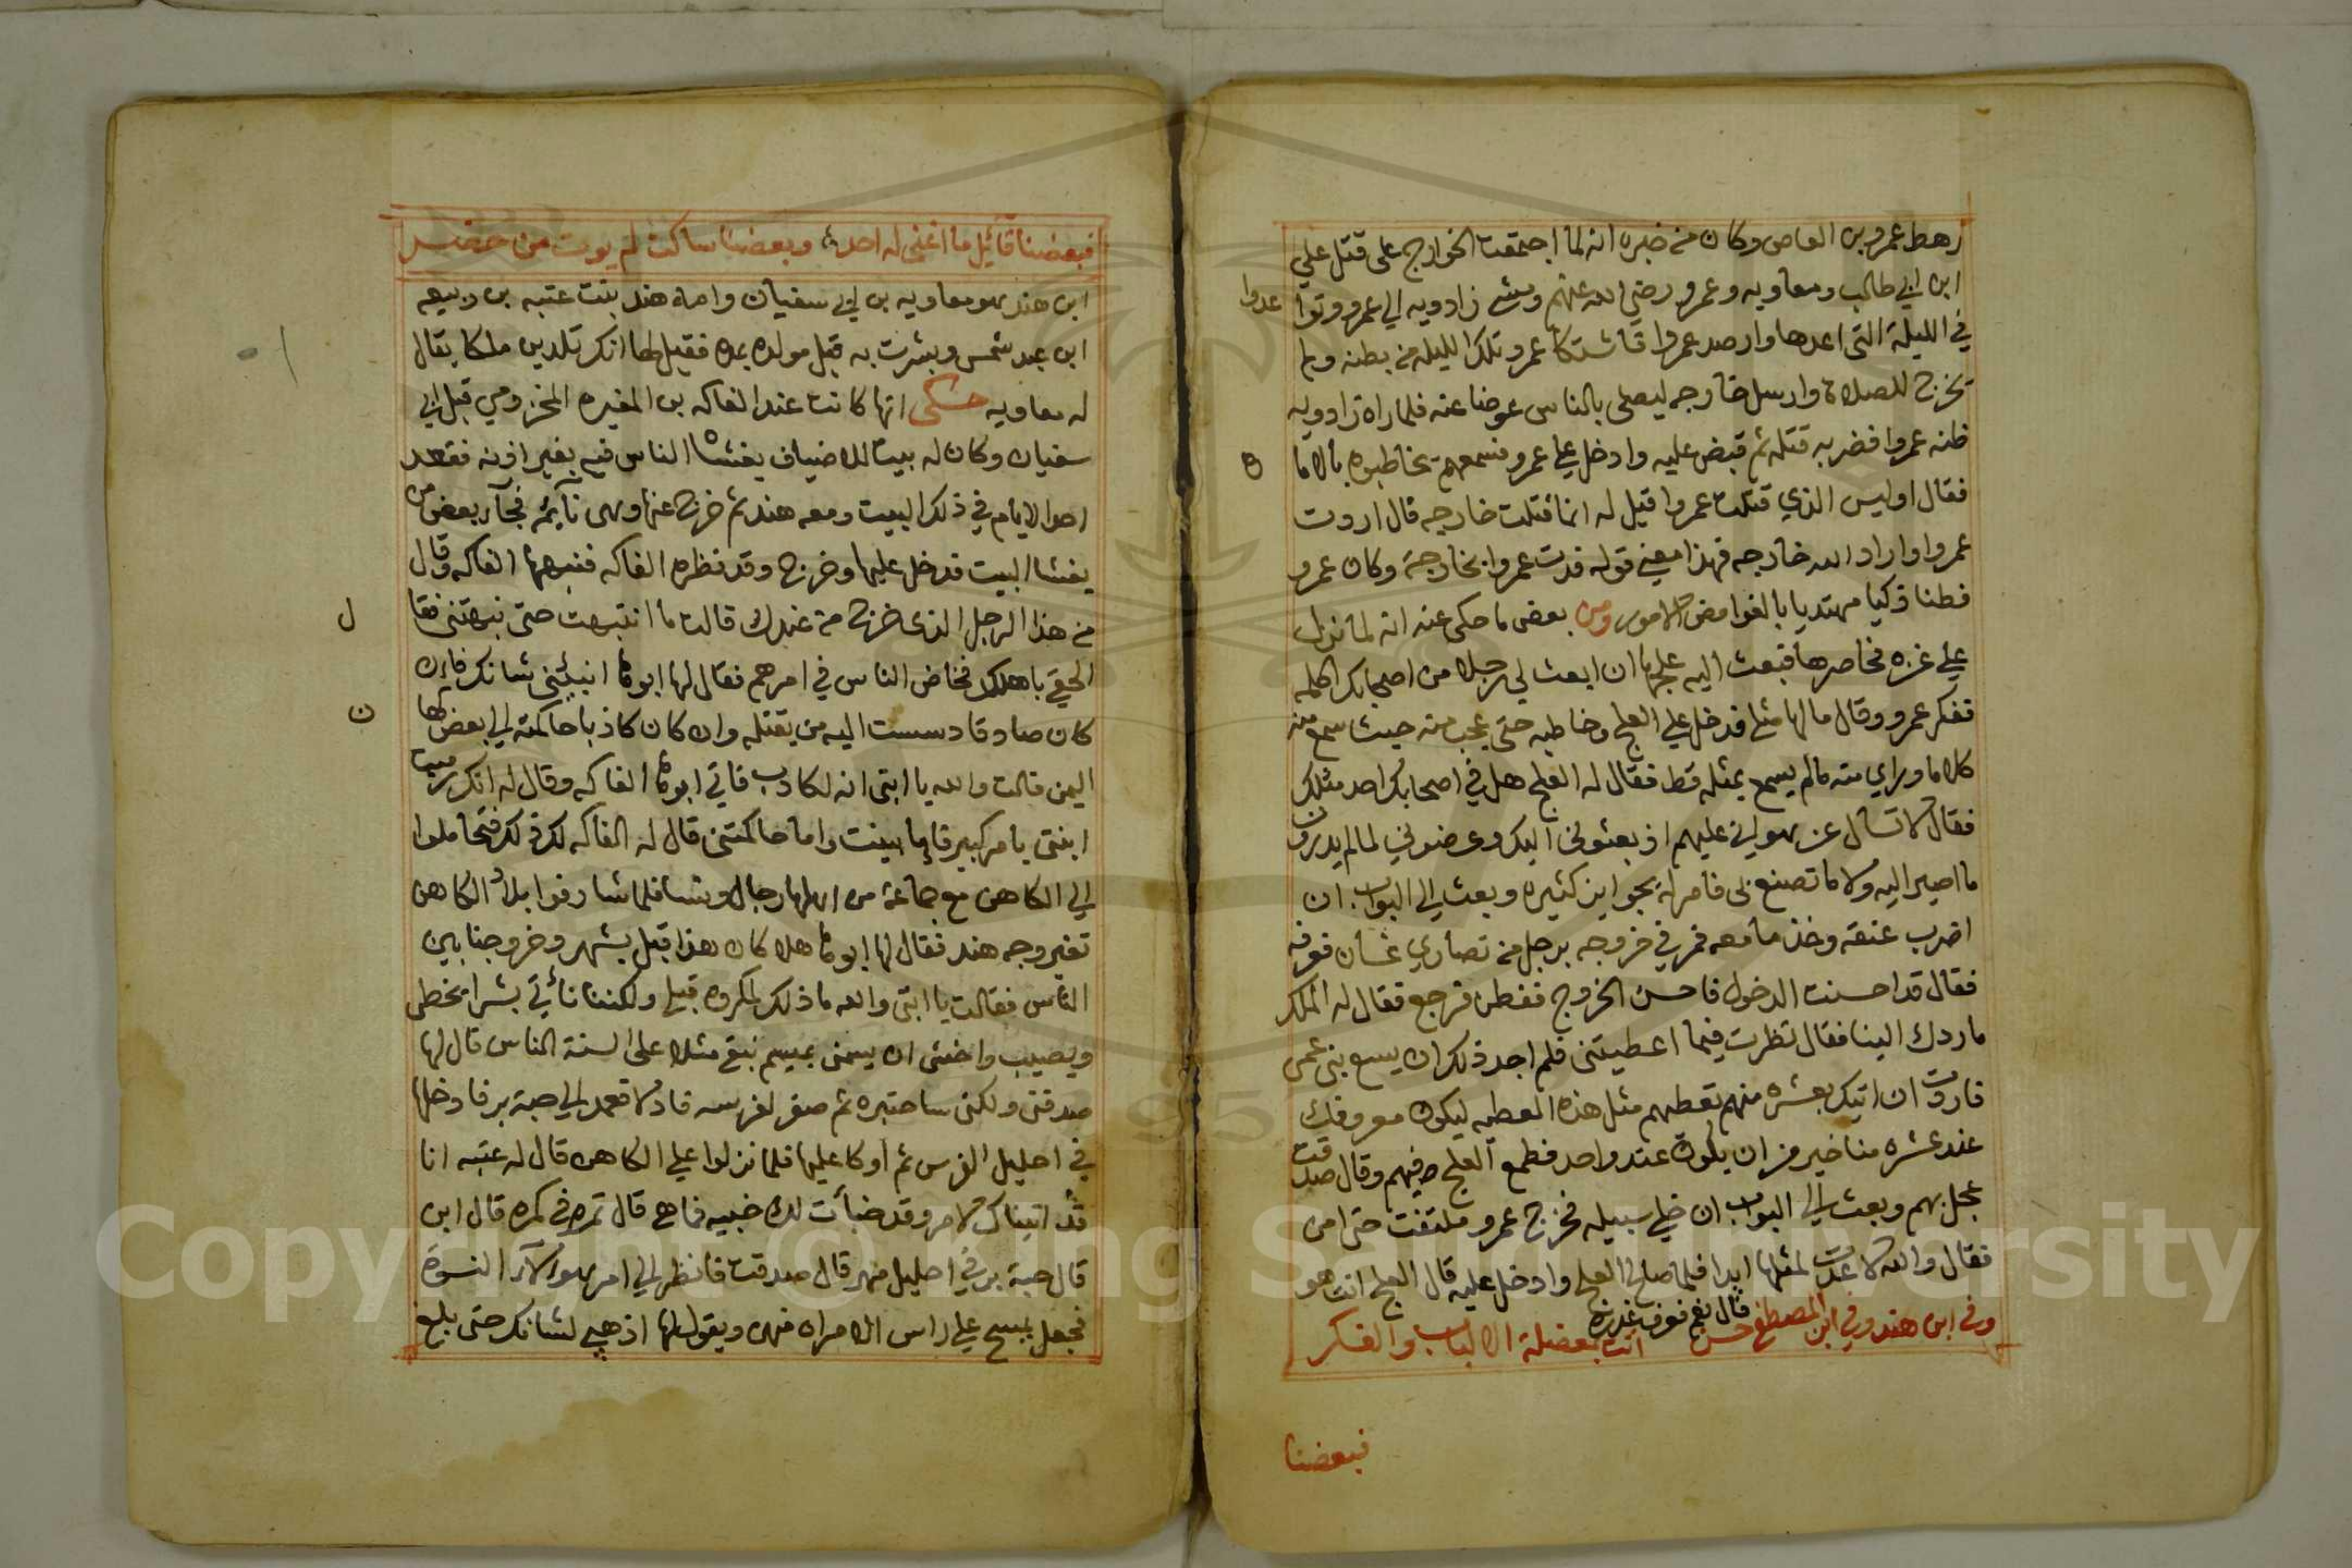 رهط عمرو بن العاص وكان من خبره انه لما اجتمعت الخوارج على قتل علي
ابن ابي طالب ومعاويه وعمرو رضي الله عنهم ومشى زادويه الي عمرو وتوا
عدوا
في الليلة التي اعدها وارصد عمروا فاشتكا عمرو تلك الليله من بطنه ولم
يخرج للصلاة وارسل خارجه ليصلي بالناس عوضا عنه فلما راه زادويه
ظنه عمروا فضربه قتله ثم قبض عليه وادخل علي عمرو فسمعهم يخاطبوه بالاما
ه
فقال اوليس الذي قتلت عمروا قيل له انما قتلت خارجه قال اردت
عمروا واراد الله خارجه فهذا معني قوله فدت عمروا بخارجة وكان عمرو
فطنا ذكيا مهتديا بالغوامض الامور ومن بعض ما حكى عنه انه لما نزل
علي غزه فحاصرها فبعث اليه علجها ان ابعث لي رجلا من اصحابك اكلمه
تفكر عمرو وقال مالها مثلي فدخل علي العلج وخاطبه حتى عجب منه حيث سمع منه
كلاما وراي منه مالم يسمع بمثله قط فقال له العلج هل في اصحابك احد مثلك
فقال لا تسال عن هواني عليهم اذ بعثوني اليك وعرضوني لما لم يدرون
ما اصير اليه ولا ما تصنع بي فامر له بجوايز كثيره وبعث الي البواب ان
اضرب عنقه وخذ ما معه فمر في خروجه برجل من نصاري غسان فعرفه
فقال قد احسنت الدخول فاحسن الخروج ففطن فرجع فقال له الملك
ما ردك الينا فقال نظرت فيما اعطيتني فلم اجد ذلك ان يسع بني عمي
فاردت ان اتيك بعشره منهم تعطيهم مثل هذه العطيه ليكون معروفك
عند عشره منا خير من ان يكون عند واحد فطمع العلج فيهم وقال صدقت
عجل بهم وبعث الي البواب ان خلي سبيله فخرج عمرو ملتفت حتى امن
فقال والله لا عدت لمثلها ابدا فلما صالح العلج وادخل عليه قال العلج انت هو
قال نعم فعرف غدره
وفي ابن هند وفي ابن المصطفى حسن اتت بمعضلة الالباب والفكر
فبعضنا
فبعضنا قائيل ما اغتى له احد وبعضنا ساكت لم يوت من حضر
ابن هند هو معاويه بن ابي سفيان وامه هند بنت عتبه بن ربيعه
ابن عبد شمس وبشرت به قبل مولده بمده فقيل لها انك تلدين ملكا يقال
له معاويه حكى انها كانت عند الفاكه بن المغيره المخزومي قبل ابي
سفيان وكان له بيتا للاضياف يغشاه الناس فيه بغير اذنه فقعد
احوا الايام في ذلك البيت ومعه هند ثم خرج عنها وهى نايمه فجآء بعض من
يغشا البيت فدخل عليها وخرج وقد نظره الفاكه فنبهها الفاكه وقال
من هذا الرجل الذى خرج من عندك قالت ما انتبهت حتى نبهتني فقا
ل
الحقي باهلك فخاض الناس في امرهم فقال لها ابوها انبئيني شانك فان
كان صادقا دسست اليه من يقتله وان كان كاذبا حاكمته الي بعض كها
ن
اليمن قالت والله يا ابتي انه لكاذب فاتي ابوها الفاكه وقال له انك رميت
ابنتي بامر كبير فاما بينت واما حاكمتني قال له الفاكه لك ذلك فتحاملوا
الي الكاهن مع جماعة من اهلها رجال ونسا فلما شارفوا بلاد الكاهن
تغير وجه هند فقال لها ابوها هلا كان هذا قبل يشهر وخروجنا بين
الناس فقالت يا ابتي والله ما ذلك لمكروه قبلي ولكننا ناتي بشرا يخطي
ويصيب واخشى ان يسمني بميسم نبقي مثلا على السنة الناس قال لها
صدقتي ولكني ساختبره ثم صفر لفرسه فادلا فعمد الي حبة بر فادخلها
في احليل الفرس ثم اوكا عليها فلما نزلوا علي الكاهن قال له عتبه انا
قد اتيناك لامر وقد خبأت لك خبيه فما هي قال تمره في كمره قال ابن
قال حبة بر في احليل مهر قال صدقت فانظر الي امر هولآء النسوة
فجعل يمسح علي راس الامراه منهن ويقول لها اذهبي لشانك حتى بلغ